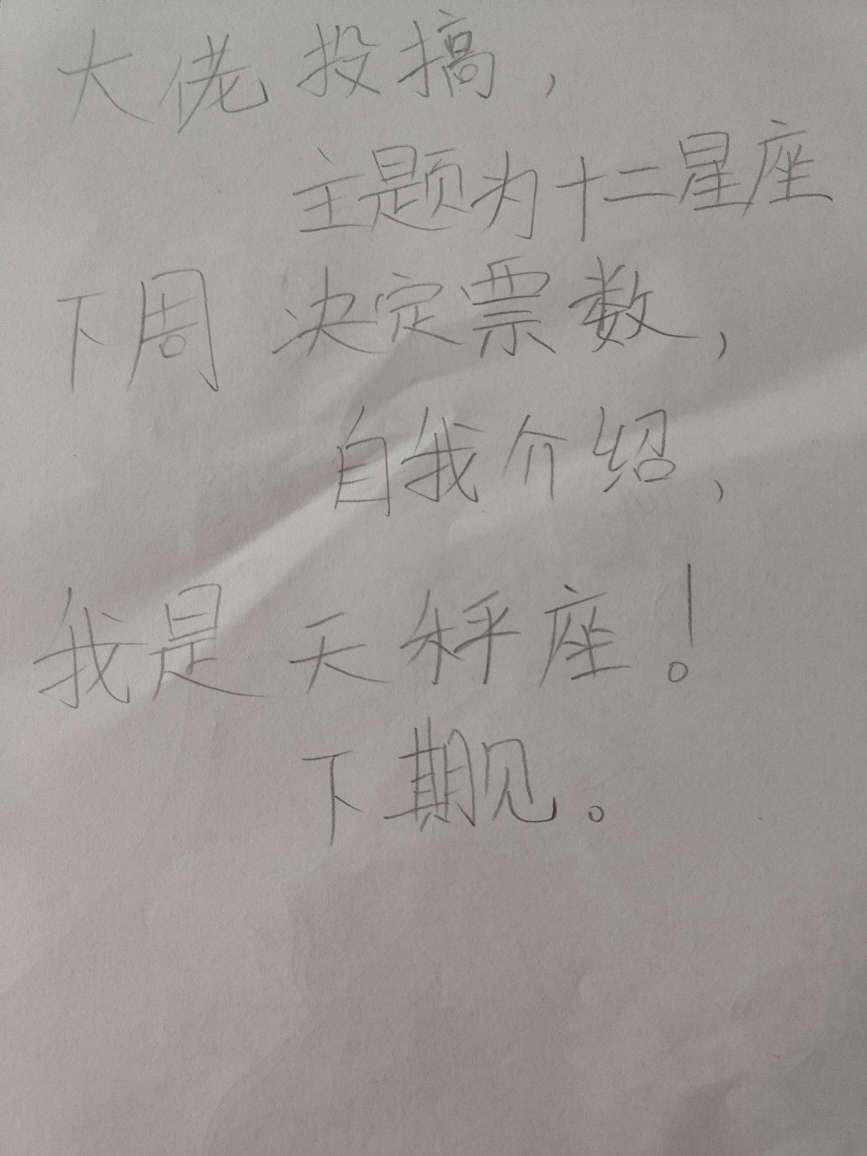 大佬投搞，
主题为十二星座
下周 决定票数，
自我介绍、
我是 天秤座！
下期见。